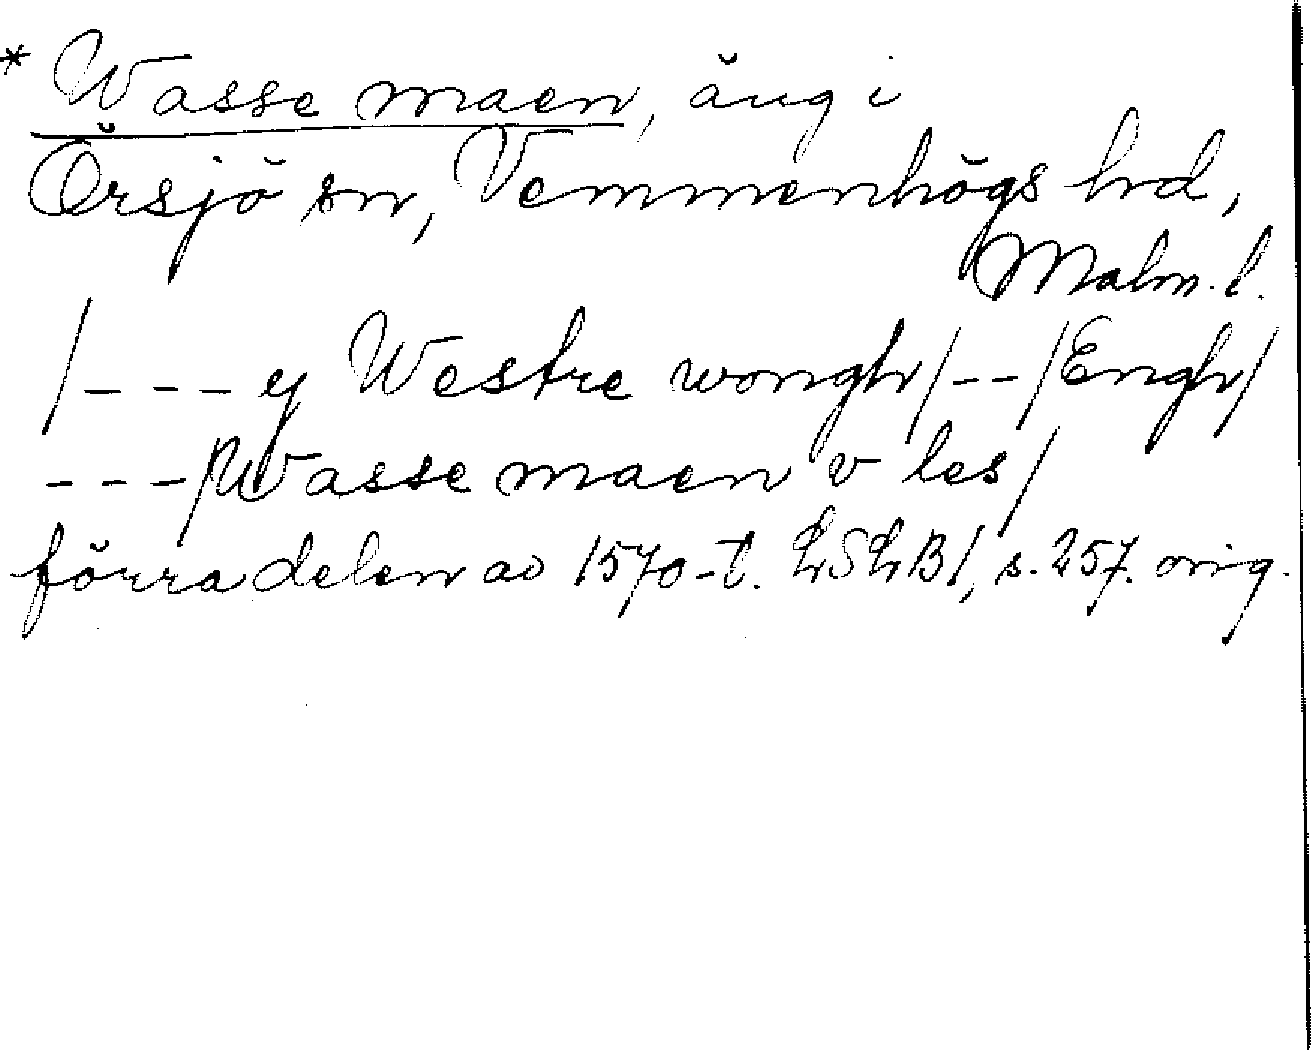 * Wasse maen, äng i
Örsjö sn, Vemmenhögs hd,
Malm. l.
/--- y Westre wongh/--/Engh/
---/Wasse maen v les/
förra delen av 1570-t. LSLB 1, s. 257. orig.